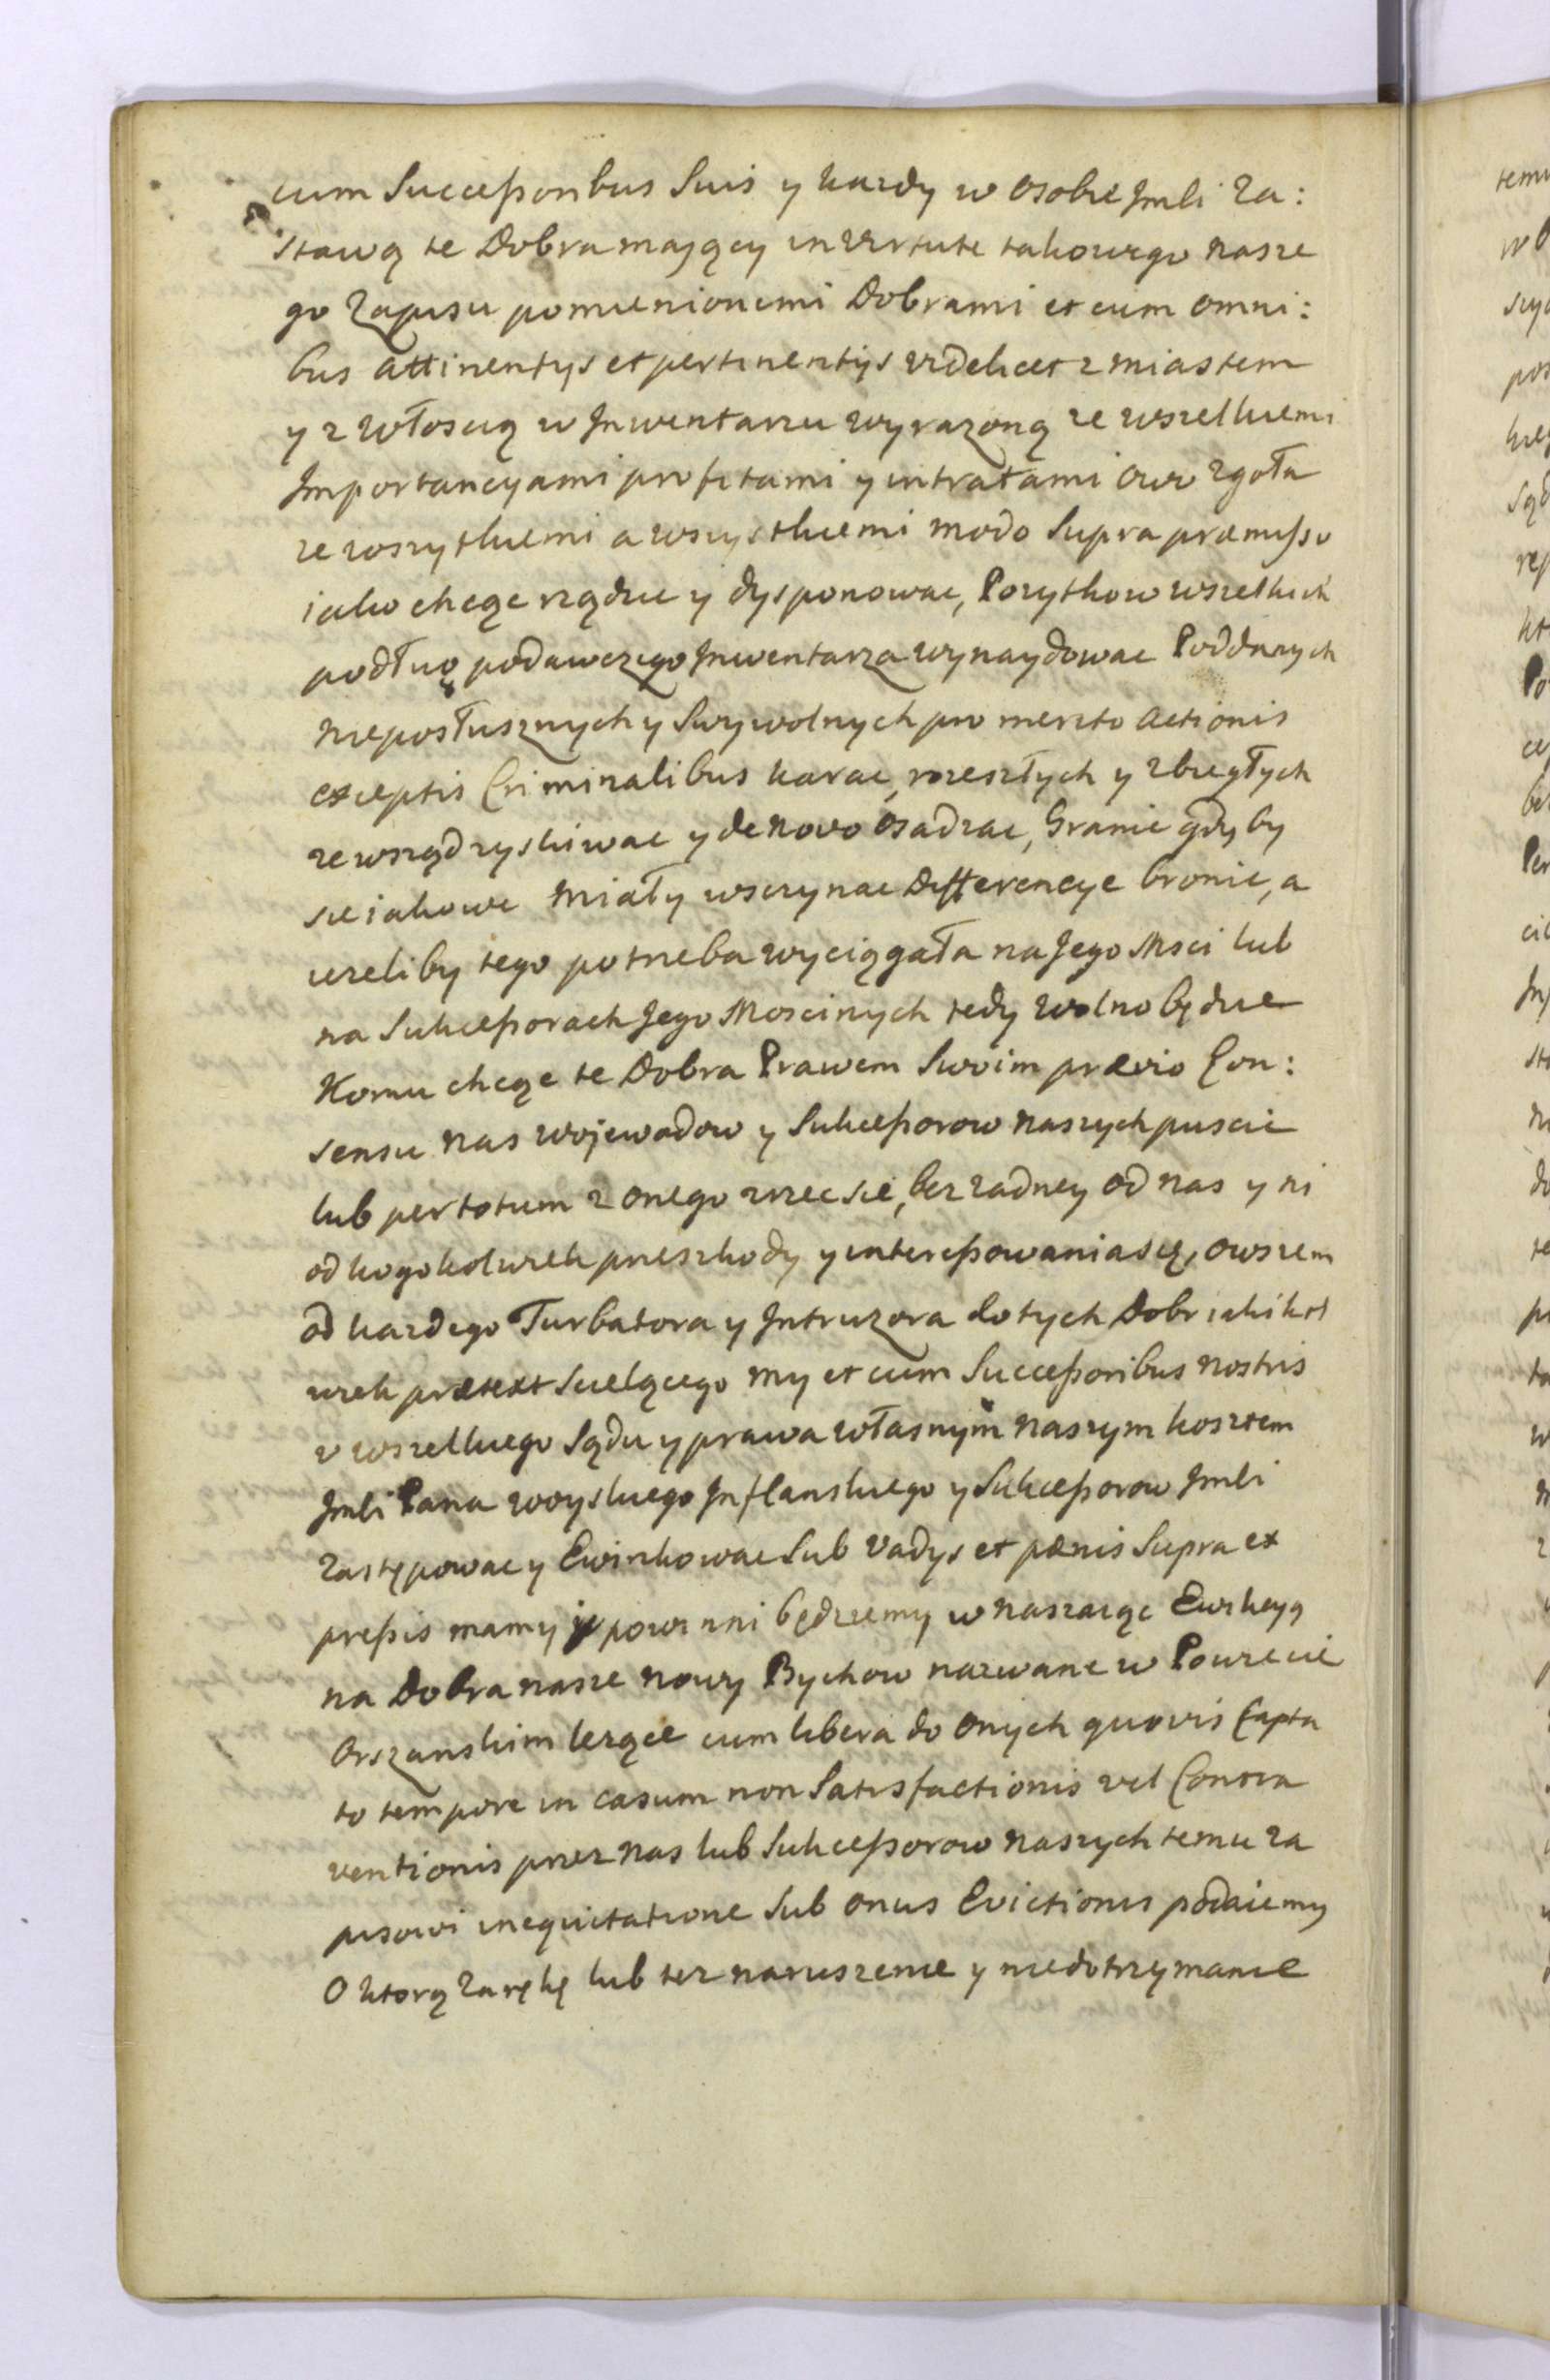 cum Successoribus Suis y kazdy w osobie Jmsci Za:
stawą te Dobra mający in virtute takowego nasze
go Zapisu pomienionemi Dobrami et cum omni:
bus attinentijs et pertinentijs videlicet z miastem
y z włoscią w Jnwentarzu wyrazoną ze wszelkiemi
Jmportancyami profitami y intratami owo zgoła
ze wszytkiemi a wszystkiemi modo Supra præmisso
iako chcąc rządzic y dysponowac, Pozytkow wszelkich
podług podawczego Jnwentarza wynaydowac Poddanych
nieposłusznych y Swywolnych pro merito actionis
exceptis Criminalibus karac, rozeszłych y zbiegłych
zewsząd zyskiwac y de novo osadzac, Granic gdyby
sie iakowe miały wszczynac Differencye bronic, a
iezeliby tego potrzeba wyciągała na Jego Msci lub
na Sukcessorach Jego Moscinych tedy wolno będzie
Komu chcąc te Dobra Prawem Swoim prævio Con:
sensu nas Wojewodow y Sukcessorow naszych puscic
lub per totum z onego zrzec sie, bez zadney od nas y ni
od kogokolwiek przeszkody y interessowania się, owszem
od kazdego Turbatora y Jntruzora do tych Dobr iakikol
wiek prætext scielącego my et cum Successoribus nostris
v wszelkiego Sądu y prawa własnym naszym kosztem
Jmsci Pana Woyskiego Jnflanskiego y Sukcessorow Jmsci
zastępowac y Ewinkowac Sub Vadijs et pænis Supra ex
pressis mamy y powinni będziemy wnaszaiąc Ewikcyą
na Dobra nasze nowy Bychow nazwane w Powiecie
Orszanskim lezące cum libera do onych quovis Capta
to tempore in casum non Satisfactionis vel Contra
ventionis przez nas lub Sukcessorow naszych temu za
pisowi inequitatione Sub onus Evictionis podaiemy
O ktorą zarękę lub tez naruszenie y niedotrzymanie